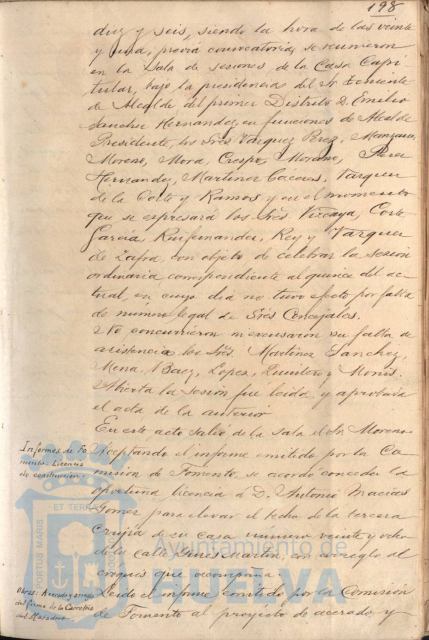 198
diez y seis, siendo la hora de las veinte
y una, previa convocatoria, se reunieron
en la Sala de sesiones de la Casa Capi-
tular, bajo la presidencia del Sr. Teniente
de Alcalde del primer Distrito D. Emilio
Sanchez Hernandez, en funciones de Alcalde
Presidente, los Sres. Vazquez Perez, Manzano,
Moreno, Mora, Crespo, Morano, Perez
Hernandez, Martinez Caceres, Vazquez
de la Corte y Ramos y en el momento
que se expresará los Sres. Vizcaya, Corte
Garcia, Ruifernandez, Rey y Vazquez
de Zafra, con objeto de celebrar la sesion
ordinaria correspondiente al quince del ac-
tual, en cuyo dia no tuvo efecto por falta
de numero legal de Sres. Concejales.
No concurrieron ni excusaron su falta de
asistencia los Sres. Martinez Sanchez,
Mena, Baez, Lopez, Quintero y
Abierta la sesión fue leida y aprobada
el acta de la anterior.
En este acto salió de la Sala el Sr. Moreno.
Informes de Fo-
mento. Licencia
de construccion.
Aceptando el informe emitido por la Co-
mision de Fomento, se acordó conceder la
oportuna licencia á D. Antonio Macias
Gomez para elevar el techo de la tercera
crujia de su casa número veinte y ocho
de la calle Ginés Martin, con arreglo al
croquis que acompaña.
Obras: Acerado y
del firme de la Carretera
del
Leido el informe emitido por la Comisión
de Fomento al proyecto de acerado y
PORTUS MARIS
ET TERRAE
Ayuntamiento de
HUELVA